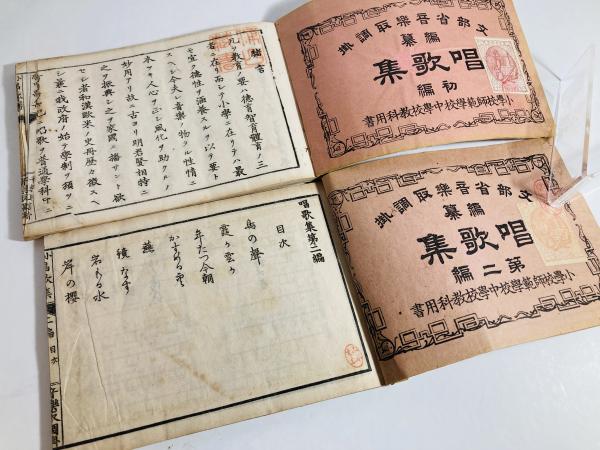 文部省音樂取調掛
編纂
唱歌集
初編
小學校師範學校中學校教科用書
緒言
凡ソ教育ノ要ハ德育智育體育ノ三
者ニ在リ而シテ小學ニ在リテハ最
モ宜ク德性ヲ涵養スルヲ以テ要ト
スヘシ今夫レ音樂ノ物タル性情ニ
本ツキ人心ヲ正シ風化ヲ助クルノ
妙用アリ故ニ古ヨリ明君賢相特ニ
之ヲ振興シ之ヲ家國ニ播サント欲
セシ者和漢歐米ノ史冊歷々徵スヘ
シ曩ニ我政府ノ始テ學制ヲ頒ツニ
唱歌ヲ普通學科中ニ
文部省音樂取調掛
編纂
唱歌集
第二編
小學校師範學校中學校教科用書
唱歌集第二編
目次
鳥の聲
霞か雲か
年たつ今朝
かすめる空
燕
鏡なす
岩もる水
岸の櫻
二編 目次